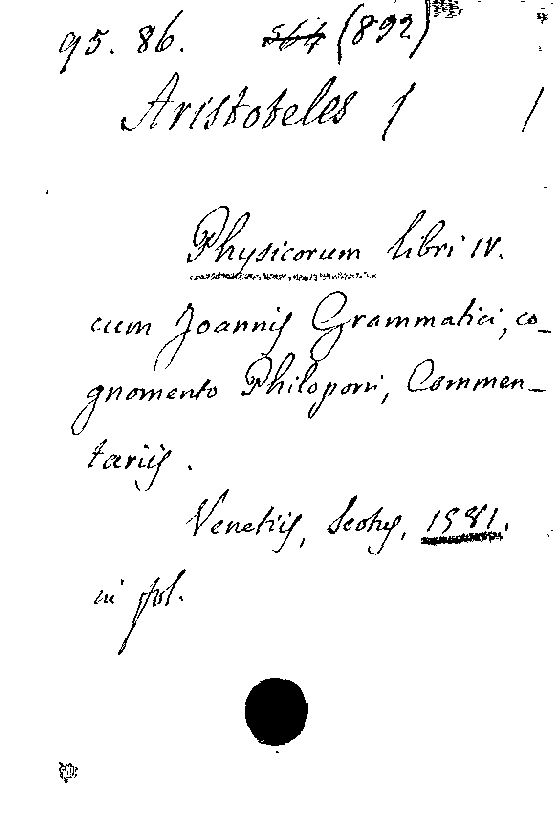 95. 86. 564 (892)
Aristoteles / /
Physicorum libri IV.
cum Joannis Grammatici, co-
gnomento Philoponi, Commen-
tariis.
Venetiis, Scotus, 1581.
in fol.